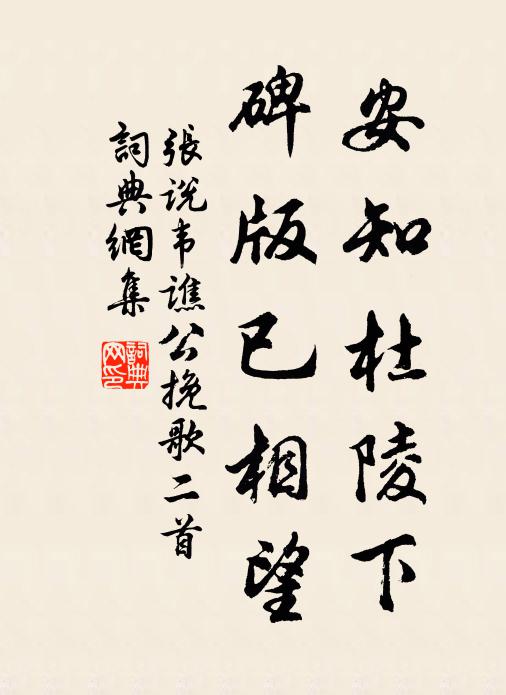 安知杜陵下
碑版已相望
張说韦譙公挽歌二首
詞典網集
詞典
网印